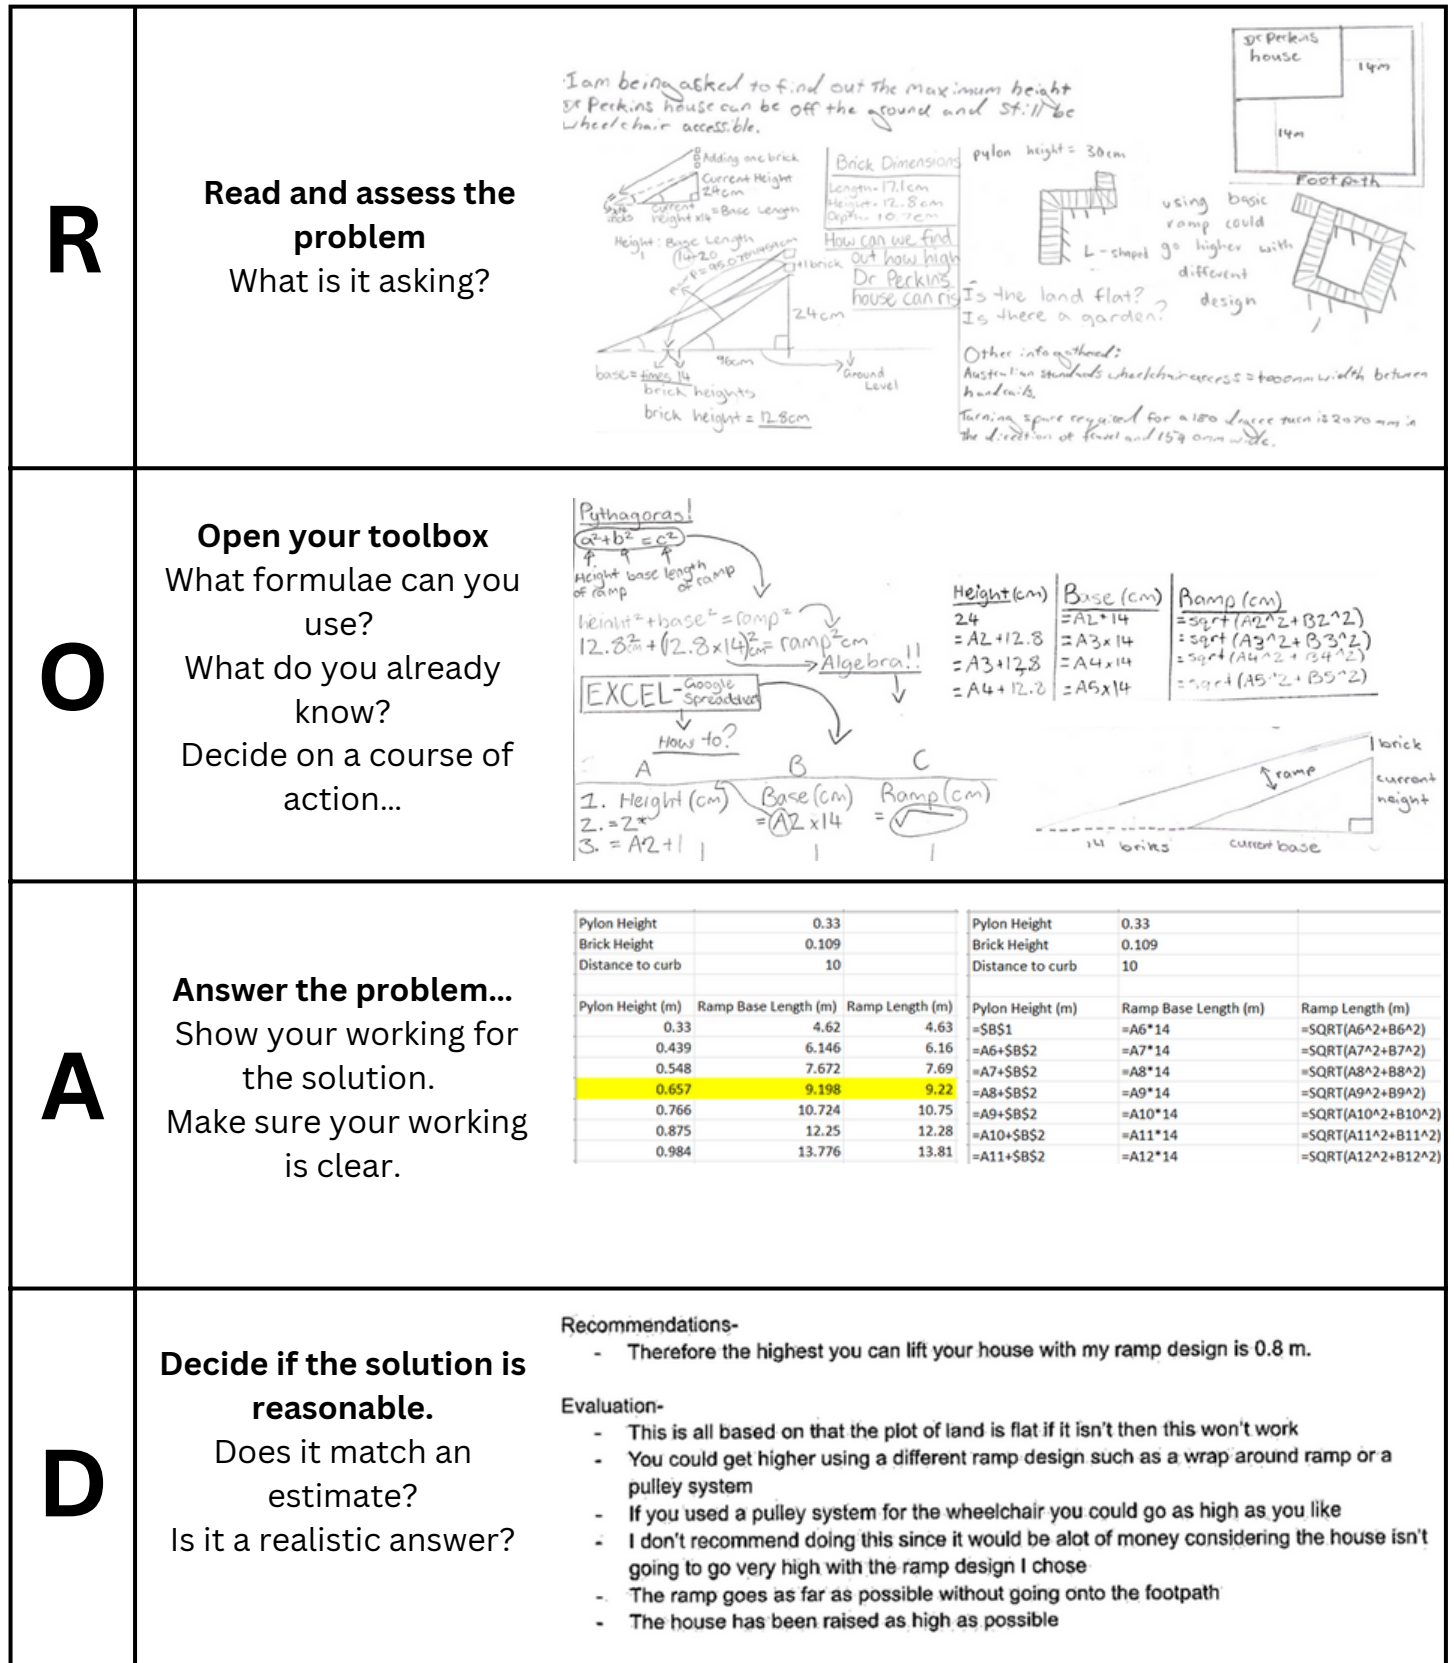 R
Read and assess the
problem
What is it asking?
I am being asked to find out the maximum height
Dr Perkins house can be off the ground and still be
wheelchair accessible.
Dr Perkins
house
14m
14m
Footpath
Adding one brick
Current Height
24cm
Current
height x14 = Base Length
Height : Base Length
1 14-20
+1 brick
24cm
96cm
base = times 14
brick heights
brick height = 12.8cm
Ground
Level
Brick Dimensions
Length - 17.1cm
Height - 12.8cm
Depth - 10.7cm
How can we find
out how high
Dr Perkins
house can ris
pylon height = 30cm
L-shaped
using basic
ramp could
go higher with
different
design
Is the land flat?
Is there a garden?
Other info gathered:
Australian standards wheelchair access = 1000mm width between
handrails.
Turning space required for a 180 degree turn is 2070 mm in
the direction of travel and 1540mm wide.
O
Open your toolbox
What formulae can you
use?
What do you already
know?
Decide on a course of
action...
Pythagoras!
a²+b² = c²
Height base length
of ramp of ramp
height² + base² = ramp²
12.8²cm + (12.8x14)²cm = ramp²cm
Algebra!!
EXCEL - Google
Spreadsheet
How to?
A B C
1. Height (cm) Base (cm) Ramp (cm)
2. =2* =A2x14 =√
3. = A2+1
Height (cm) Base (cm) Ramp (cm)
24 =A2*14 =sqrt(A2^2+B2^2)
=A2+12.8 =A3x14 =sqrt(A3^2+B3^2)
=A3+12.8 =A4x14 =sqrt(A4^2+B4^2)
=A4+12.8 =A5x14 =sqrt(A5^2+B5^2)
1 brick
ramp
current
height
14 briks
current base
A
Answer the problem...
Show your working for
the solution.
Make sure your working
is clear.
Pylon Height 0.33
Brick Height 0.109
Distance to curb 10
Pylon Height (m) Ramp Base Length (m) Ramp Length (m)
0.33 4.62 4.63
0.439 6.146 6.16
0.548 7.672 7.69
0.657 9.198 9.22
0.766 10.724 10.75
0.875 12.25 12.28
0.984 13.776 13.81
Pylon Height 0.33
Brick Height 0.109
Distance to curb 10
Pylon Height (m) Ramp Base Length (m) Ramp Length (m)
=$B$1 =A6*14 =SQRT(A6^2+B6^2)
=A6+$B$2 =A7*14 =SQRT(A7^2+B7^2)
=A7+$B$2 =A8*14 =SQRT(A8^2+B8^2)
=A8+$B$2 =A9*14 =SQRT(A9^2+B9^2)
=A9+$B$2 =A10*14 =SQRT(A10^2+B10^2)
=A10+$B$2 =A11*14 =SQRT(A11^2+B11^2)
=A11+$B$2 =A12*14 =SQRT(A12^2+B12^2)
D
Decide if the solution is
reasonable.
Does it match an
estimate?
Is it a realistic answer?
Recommendations-
- Therefore the highest you can lift your house with my ramp design is 0.8 m.
Evaluation-
- This is all based on that the plot of land is flat if it isn't then this won't work
- You could get higher using a different ramp design such as a wrap around ramp or a
pulley system
- If you used a pulley system for the wheelchair you could go as high as you like
- I don't recommend doing this since it would be alot of money considering the house isn't
going to go very high with the ramp design I chose
- The ramp goes as far as possible without going onto the footpath
- The house has been raised as high as possible